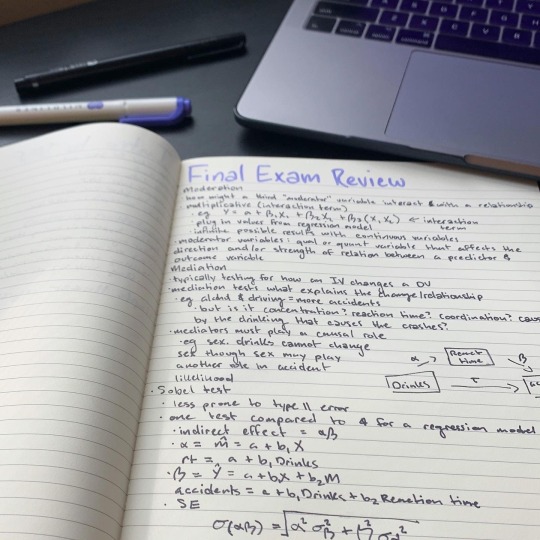 Final Exam Review
Moderation
how might a third "moderator" variable interact & with a relationship
multiplicative (interaction term)
· eg Y = a + β₁X₁ + β₂X₂ + β₃(X₁X₂) ← interaction term
· plug in values from regression model
· infinite possible results with continuous variables
· moderator variables: qual or quant variable that affects the
direction and/or strength of relation between a predictor &
outcome variable
Mediation
· typically testing for how an IV changes a DV
· mediation tests what explains the change/relationship
· eg alcohol & driving = more accidents
· but is it concentration? reaction time? coordination?
by the drinking that causes the crashes?
· mediators must play a causal role
· eg sex. drinks cannot change
sex though sex may play
another role in accident
likelihood
α React time β
Drinks τ
· Sobel test
· less prone to type II error
· one test compared to 4 for a regression model
· indirect effect = αβ
· α = m̂ = a + b₁X
rt = a + b₁Drinks
· β = Ŷ = a + b₁X + b₂M
accidents = a + b₁Drinks + b₂Reaction time
· SE
σ(αβ) = √α²σ²β + β²σα²